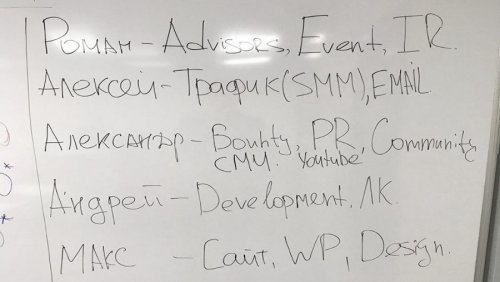 Роман - Advisors, Event, IR.
Алексей - Трафик (SMM), EMAIL.
Александр - Bounty, PR, Community
СМИ. Youtube
Андрей - Development, ЛК.
МАКС - Сайт, WP, Design.